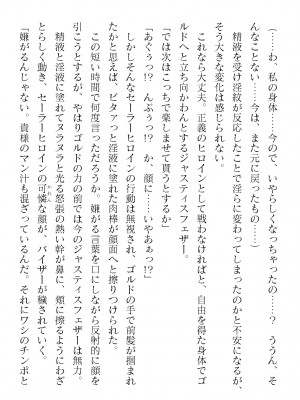 （……わ、私の身体……今ので、いやらしくなっちゃったの……？　ううん、そ
んなことない……今は、また元に戻ったもの……）
　精液を受け淫紋が反応したことで淫らに変わってしまったのかと不安になるが、
そう大きな変化は感じられない。
　これなら大丈夫。正義のヒロインとして戦わなければと、自由を得た身体でゴ
ールドへと立ち向かわんとするジャスティスフェザー。
「では次はこっちで楽しませて貰うとするか」
「あぐぅっ!?　んぶぅっ!?　か、顔に……いやあぁっ!?」
　しかしそんなセーラーヒロインの行動は無視され、ゴルドの手で前髪が掴まれ
たかと思えば、ビタァっと淫液に塗れた肉棒が顔面へと擦りつけられた。
　この短い時間で何度言っただろうか。嫌がる言葉を口にしながら反射的に顔を
引こうとするが、やはりゴルドの力の前では今のジャスティスフェザーは無力。
　精液と淫液に塗れてヌラヌラと光る怒張の熱い幹が鼻に、頬に擦るようにわざ
とらしく動き、セーラーヒロインの可憐な顔が、バイザーが穢されていく。
「嫌がるんじゃない。貴様のマン汁も混ざっているんだ。それにワシのチンポと